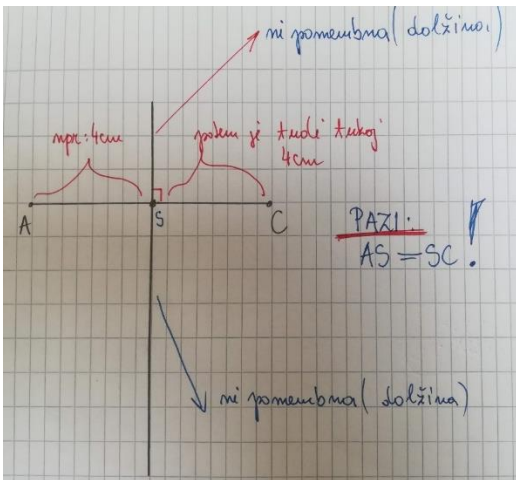 ni pomembna (dolžina)
npr: 4cm
potem je tudi tukaj
4cm
A
S
C
PAZI:
AS = SC !
ni pomembna (dolžina)